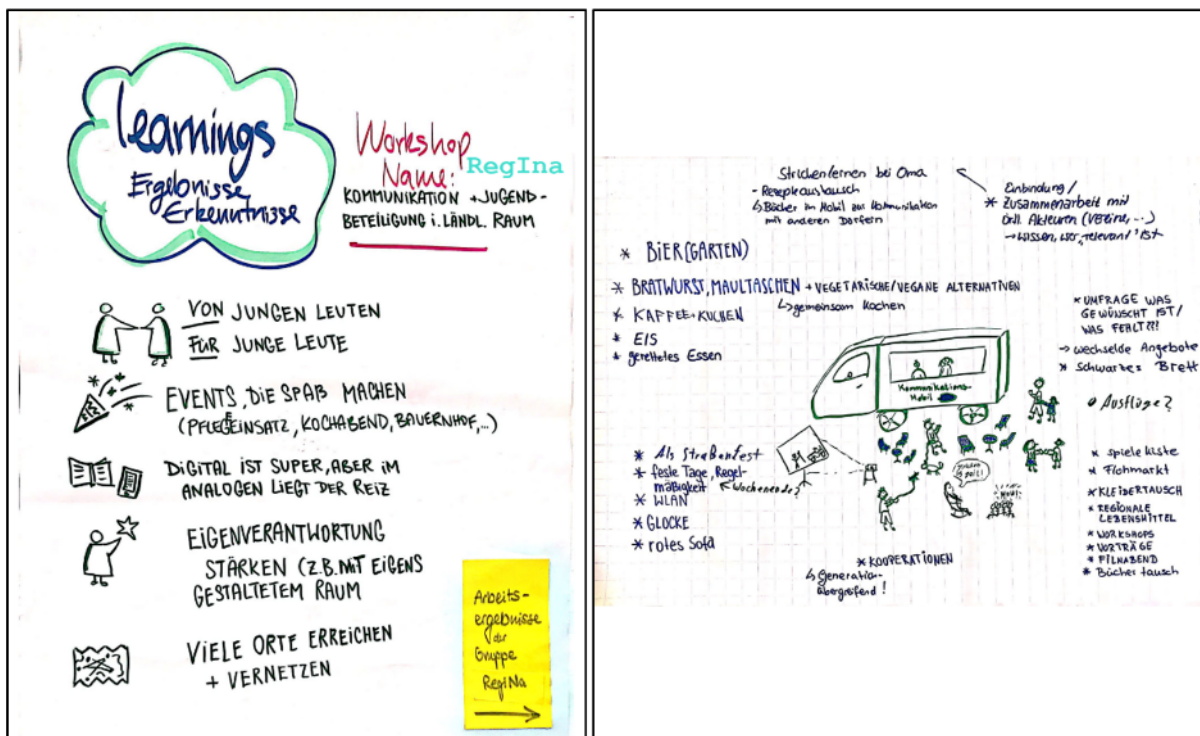 learnings
Ergebnisse
Erkenntnisse
Workshop
Name:
RegIna
KOMMUNIKATION + JUGEND-
BETEILIGUNG i. LÄNDL. RAUM
VON JUNGEN LEUTEN
FÜR JUNGE LEUTE
EVENTS, DIE SPAß MACHEN
(PFLEGEEINSATZ, KOCHABEND, BAUERNHOF,...)
DIGITAL IST SUPER, ABER IM
ANALOGEN LIEGT DER REIZ
EIGENVERANTWORTUNG
STÄRKEN (Z.B. MIT EIGENS
GESTALTETEM RAUM
VIELE ORTE ERREICHEN
+ VERNETZEN
Arbeits-
ergebnisse
der
Gruppe
RegINa
Stricken lernen bei Oma
- Rezeptaustausch
↳ Bücher im Mobil zur Kommunikation
mit anderen Dörfern
Einbindung/
* Zusammenarbeit mit
örtl. Akteuren (Vereine,...)
→ wissen, wer "relevant" ist
* BIER(GARTEN)
* BRATWURST, MAULTASCHEN + VEGETARISCHE/VEGANE ALTERNATIVEN
↳ gemeinsam kochen
* KAFFEE + KUCHEN
* EIS
* gerettetes Essen
* UMFRAGE WAS
GEWÜNSCHT IST/
WAS FEHLT?!!
→ wechselde Angebote
* Schwarzes Brett
Kommunikations-
Mobil
Ausflüge?
* Als Straßenfest
* feste Tage, Regel-
mäßigkeit
Wochenende?
* WLAN
* GLOCKE
* rotes Sofa
* spielekiste
* Flohmarkt
* KLEIDERTAUSCH
* REGIONALE
LEBENSMITTEL
* WORKSHOPS
* VORTRÄGE
* FILMABEND
* Büchertausch
* KOOPERATIONEN
↳ Generation-
übergreifend!